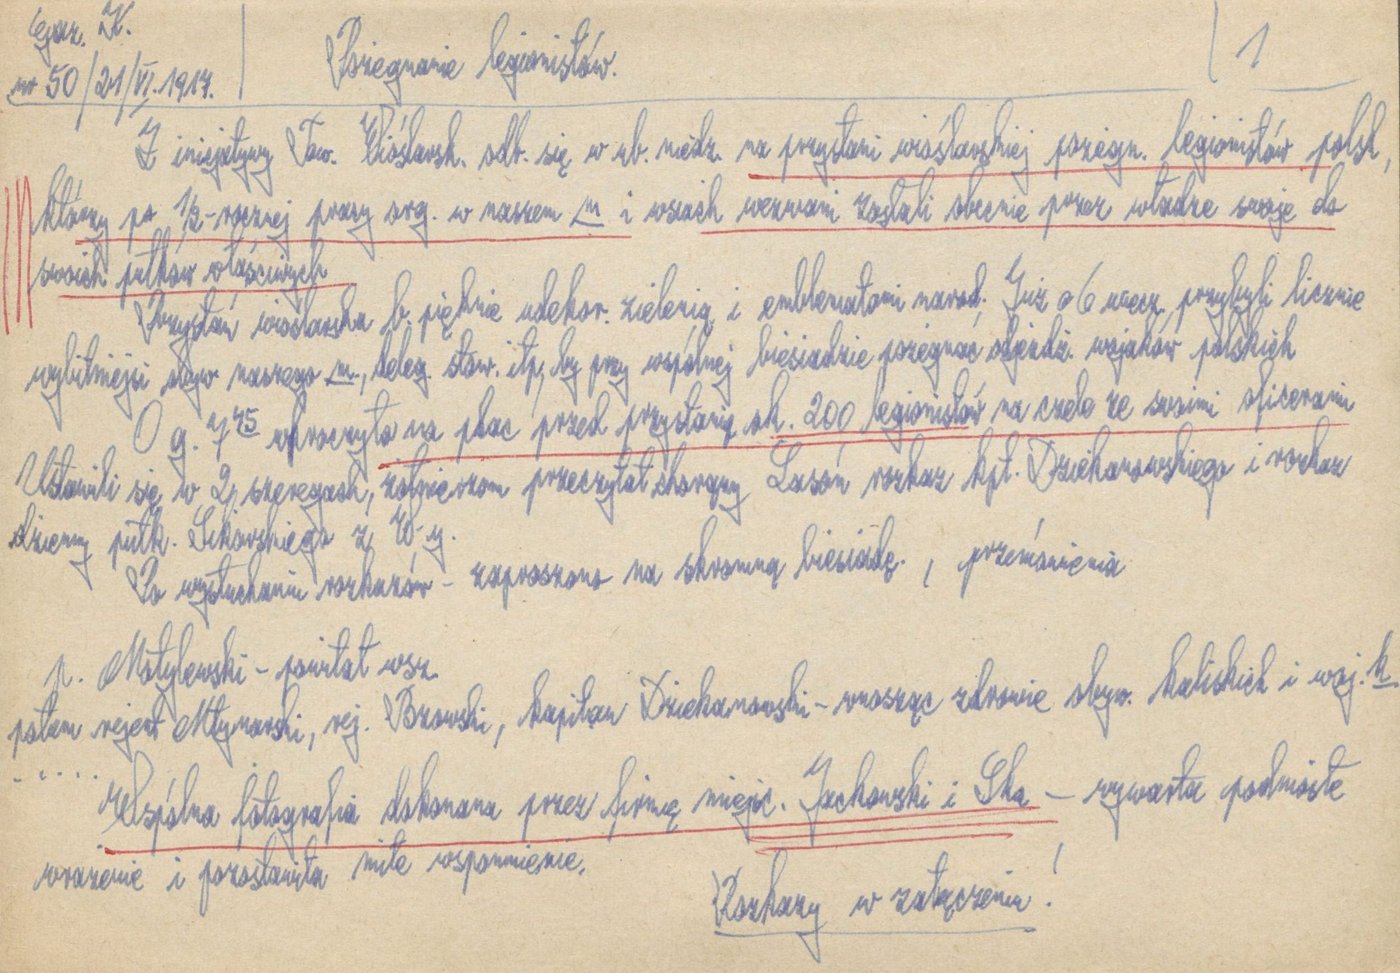 Gaz. K.
nr 50/21/VI.1917.
Pożegnanie legionistów.
1
Z inicjatywy Tow. Wioślarsk. odb. się w ub. niedz. na przystani wioślarskiej pożegn. legionistów polsk,
którzy po 1/2-rocznej pracy org. w naszem m i wsiach wezwani zostali obecnie przez władze swoje do
swoich pułków właściwych
Przystań wioślarska b. pięknie udekor. zielenią i emblematami narod. Już o 6 wiecz. przybyli licznie
wybitniejsi obyw. naszego m., deleg. stow. itp, by przy wspólnej biesiadzie pożegnać objeżdż. wojaków polskich
O g. 7 45 wkroczyło na plac przed przystanią ok. 200 legionistów na czele ze swoimi oficerami
Ustawili się w 2 szeregach, żołnierzom przeczytał chorąży Lasoń rozkaz kpt. Dziekanowskiego i rozkaz
dzienny pułk. Sikorskiego z W-y.
Po wysłuchaniu rozkazów - zaproszono na skromną biesiadę. , przemówienia
p. Motylewski - powitał wsz.
potem rejent Młynarski, rej. Bzowski, kapitan Dziekanowski - wnosząc zdrowie obyw. kaliskich i woj. k
.....
Wspólna fotografia dokonana przez firmę miejsc. Jackowski i Ska - wywarła podniosłe
wrażenie i pozostawiła miłe wspomnienie.
Rozkazy w załączeniu!